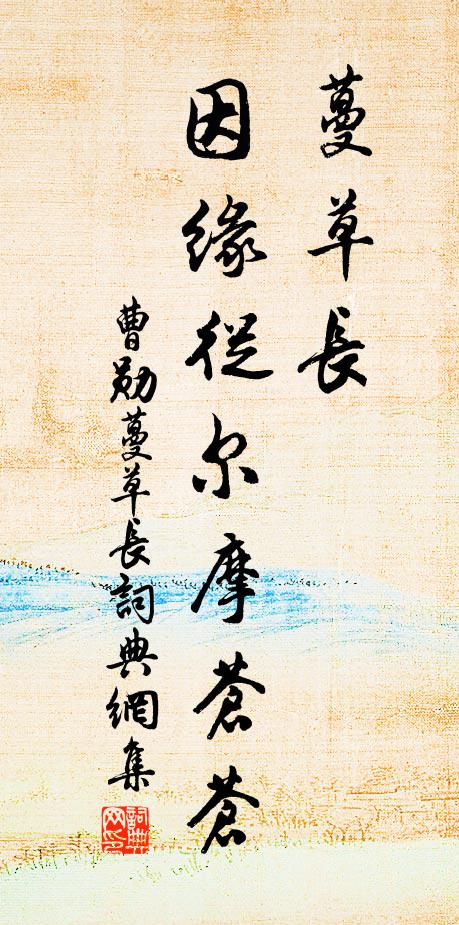 蔓草長
因緣從尔摩蒼蒼
曹勛蔓草長詞典網集
詞典網印